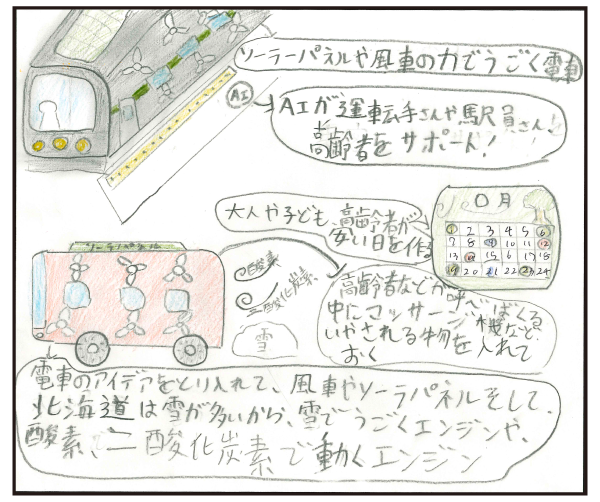 ソーラーパネルや風車の力でうごく電車
AI
AIが運転手さんや駅員さん、
高齢者をサポート!
大人や子ども、高齢者が
安い日を作る
〇月
1 2 3 4 5 6
7 8 9 10 11 12
13 15 6 17 18
19 20 21 22 23 24
ソーラーパネル
酸素
二酸化炭素
雪
高齢者などが呼べばくる
中にマッサージ機など、
いやされる物を入れて
おく
電車のアイデアをとり入れて、風車やソーラパネルそして、
北海道は雪が多いから、雪でうごくエンジンや、
酸素、二酸化炭素で動くエンジン